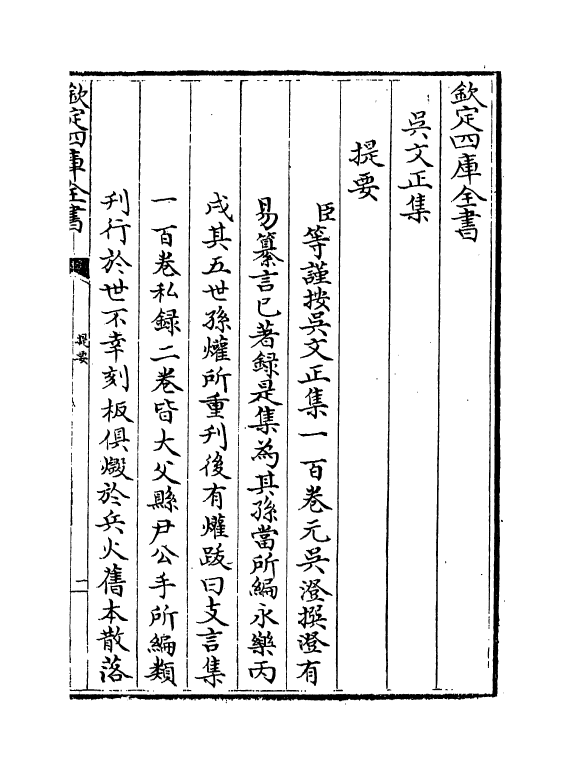 欽定四庫全書
吳文正集
提要
臣等謹按吳文正集一百卷元吳澄撰澄有
易纂言已著録是集為其孫當所編永樂丙
戌其五世孫爟所重刋後有爟跋曰支言集
一百卷私録二卷皆大父縣尹公手所編類
刋行於世不幸刻板俱燬於兵火舊本散落
欽定四庫全書
提要
一